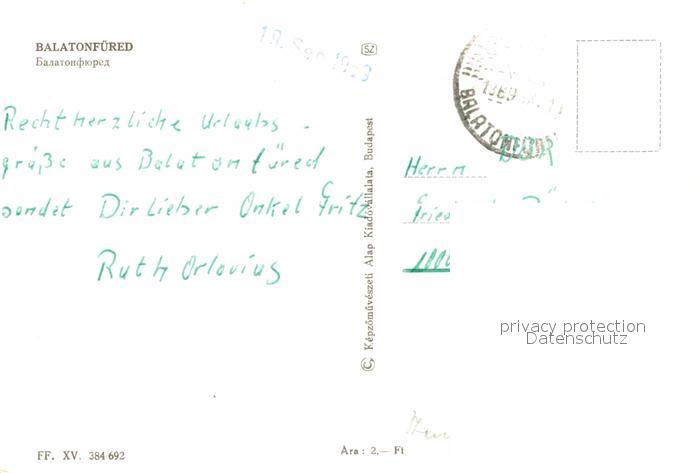 BALATONFÜRED
Балатонфюред
SZ
Recht herzliche Urlaubs-
grüße aus Balatonfüred
sendet Dir lieber Onkel Fritz
Ruth Orlovius
© Képzőművészeti Alap Kiadóvállalata, Budapest
BALATONFÜRED
DDR
Herrn
privacy protection
Datenschutz
FF. XV. 384 692
Ára: 2,— Ft